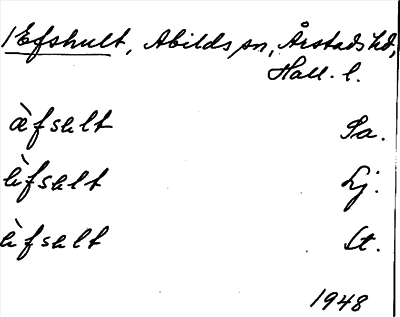 1 Efshult, Abilds sn, Årstads hd,
Hall. l.
æ̀fsɐlt Sa.
æ̀fsɐlt Lj.
æ̀fsɐlt St.
1948